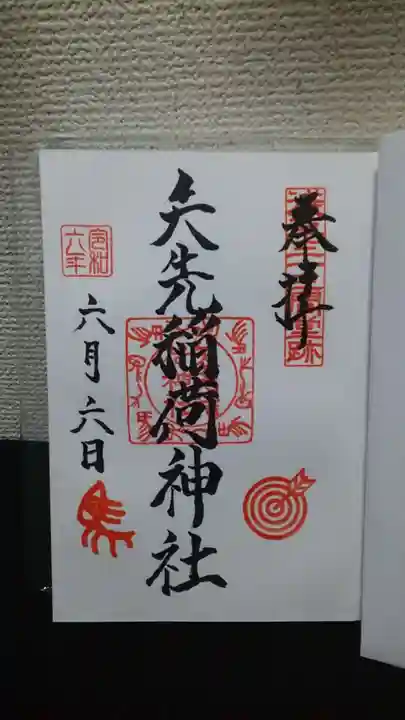 奉拝
矢先稲荷神社
令和
六年
六月六日